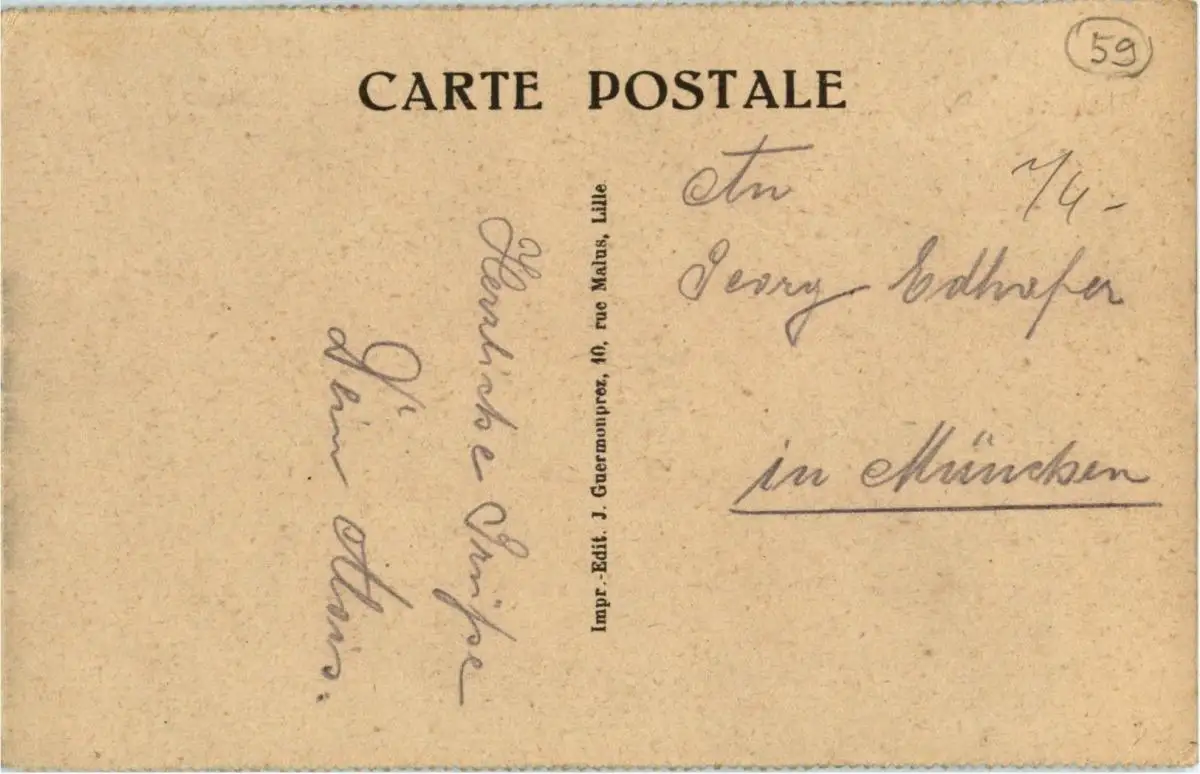 CARTE POSTALE
59
Herzliche Grüße
Dein Alois.
Impr.-Edit. J. Guermonprez, 10, rue Malus, Lille
An
Georg Edlhofer
in München